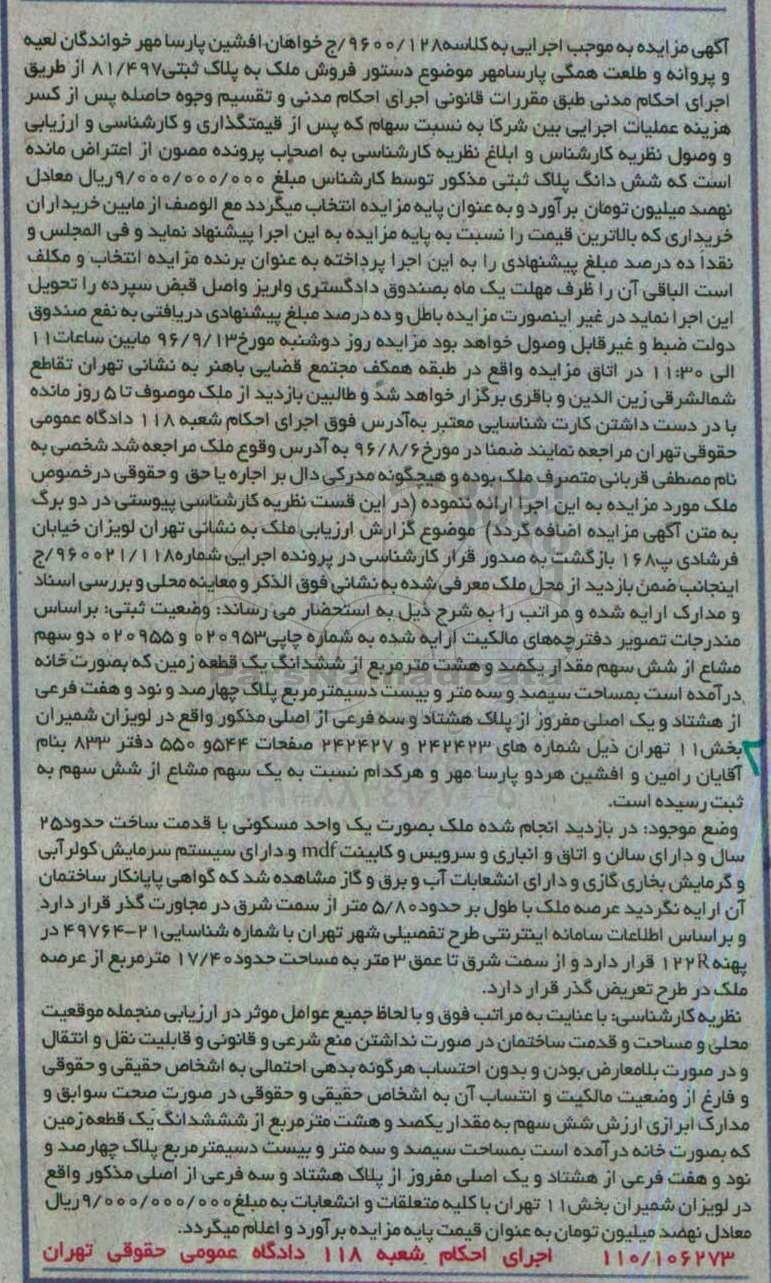 آگهی مزایده به موجب اجرایی به کلاسه ۹۶۰۰/۱۲۸/ج خواهان افشین پارسا مهر خواندگان لعیه
و پروانه و طلعت همگی پارسامهر موضوع دستور فروش ملک به پلاک ثبتی ۸۱/۴۹۷ از طریق
اجرای احکام مدنی طبق مقررات قانونی اجرای احکام مدنی و تقسیم وجوه حاصله پس از کسر
هزینه عملیات اجرایی بین شرکا به نسبت سهام که پس از قیمتگذاری و کارشناسی و ارزیابی
و وصول نظریه کارشناس و ابلاغ نظریه کارشناسی به اصحاب پرونده مصون از اعتراض مانده
است که شش دانگ پلاک ثبتی مذکور توسط کارشناس مبلغ ۹/۰۰۰/۰۰۰/۰۰۰ریال معادل
نهصد میلیون تومان برآورد و به عنوان پایه مزایده انتخاب میگردد مع الوصف از مابین خریداران
خریداری که بالاترین قیمت را نسبت به پایه مزایده به این اجرا پیشنهاد نماید و فی المجلس و
نقدا ده درصد مبلغ پیشنهادی را به این اجرا پرداخته به عنوان برنده مزایده انتخاب و مکلف
است الباقی آن را ظرف مهلت یک ماه بصندوق دادگستری واریز واصل قبض سپرده را تحویل
این اجرا نماید در غیر اینصورت مزایده باطل و ده درصد مبلغ پیشنهادی دریافتی به نفع صندوق
دولت ضبط و غیرقابل وصول خواهد بود مزایده روز دوشنبه مورخ ۹۶/۹/۱۳ مابین ساعات ۱۱
الی ۱۱:۳۰ در اتاق مزایده واقع در طبقه همکف مجتمع قضایی باهنر به نشانی تهران تقاطع
شمالشرقی زین الدین و باقری برگزار خواهد شد و طالبین بازدید از ملک موصوف تا ۵ روز مانده
با در دست داشتن کارت شناسایی معتبر به‌آدرس فوق اجرای احکام شعبه ۱۱۸ دادگاه عمومی
حقوقی تهران مراجعه نمایند ضمنا در مورخ ۹۶/۸/۶ به آدرس وقوع ملک مراجعه شد شخصی به
نام مصطفی قربانی متصرف ملک بوده و هیچگونه مدرکی دال بر اجاره یا حق و حقوقی درخصوص
ملک مورد مزایده به این اجرا ارائه ننموده (در این قست نظریه کارشناسی پیوستی در دو برگ
به متن آگهی مزایده اضافه گردد) موضوع گزارش ارزیابی ملک به نشانی تهران لویزان خیابان
فرشادی پ۱۶۸ بازگشت به صدور قرار کارشناسی در پرونده اجرایی شماره ۹۶۰۰۲۱/۱۱۸/ج
اینجانب ضمن بازدید از محل ملک معرفی شده به نشانی فوق الذکر و معاینه محلی و بررسی اسناد
و مدارک ارایه شده و مراتب را به شرح ذیل به استحضار می رساند: وضعیت ثبتی: براساس
مندرجات تصویر دفترچه‌های مالکیت ارایه شده به شماره چاپی ۰۲۰۹۵۳ و ۰۲۰۹۵۵ دو سهم
مشاع از شش سهم مقدار یکصد و هشت مترمربع از ششدانگ یک قطعه زمین که بصورت خانه
درآمده است بمساحت سیصد و سه متر و بیست دسیمترمربع پلاک چهارصد و نود و هفت فرعی
از هشتاد و یک اصلی مفروز از پلاک هشتاد و سه فرعی از اصلی مذکور واقع در لویزان شمیران
بخش ۱۱ تهران ذیل شماره های ۲۴۲۴۲۳ و ۲۴۲۴۲۷ صفحات ۵۴۴و ۵۵۰ دفتر ۸۳۳ بنام
آقایان رامین و افشین هردو پارسا مهر و هرکدام نسبت به یک سهم مشاع از شش سهم به
ثبت رسیده است.
وضع موجود: در بازدید انجام شده ملک بصورت یک واحد مسکونی با قدمت ساخت حدود۲۵
سال و دارای سالن و اتاق و انباری و سرویس و کابینت mdf و دارای سیستم سرمایش کولرآبی
و گرمایش بخاری گازی و دارای انشعابات آب و برق و گاز مشاهده شد که گواهی پایانکار ساختمان
آن ارایه نگردید عرصه ملک با طول بر حدود ۵/۸۰ متر از سمت شرق در مجاورت گذر قرار دارد
و براساس اطلاعات سامانه اینترنتی طرح تفصیلی شهر تهران با شماره شناسایی ۲۱-۴۹۷۶۴ در
پهنه R۱۲۲ قرار دارد و از سمت شرق تا عمق ۳ متر به مساحت حدود ۱۷/۴۰ مترمربع از عرصه
ملک در طرح تعریض گذر قرار دارد.
نظریه کارشناسی: با عنایت به مراتب فوق و با لحاظ جمیع عوامل موثر در ارزیابی منجمله موقعیت
محلی و مساحت و قدمت ساختمان در صورت نداشتن منع شرعی و قانونی و قابلیت نقل و انتقال
و در صورت بلامعارض بودن و بدون احتساب هرگونه بدهی احتمالی به اشخاص حقیقی و حقوقی
و فارغ از وضعیت مالکیت و انتساب آن به اشخاص حقیقی و حقوقی در صورت صحت سوابق و
مدارک ابرازی ارزش شش سهم به مقدار یکصد و هشت مترمربع از ششدانگ یک قطعه زمین
که بصورت خانه درآمده است بمساحت سیصد و سه متر و بیست دسیمترمربع پلاک چهارصد و
نود و هفت فرعی از هشتاد و یک اصلی مفروز از پلاک هشتاد و سه فرعی از اصلی مذکور واقع
در لویزان شمیران بخش ۱۱ تهران با کلیه متعلقات و انشعابات به مبلغ ۹/۰۰۰/۰۰۰/۰۰۰ریال
معادل نهصد میلیون تومان به عنوان قیمت پایه مزایده برآورد و اعلام میگردد.
۱۱۰/۱۰۶۲۷۳ اجرای احکام شعبه ۱۱۸ دادگاه عمومی حقوقی تهران